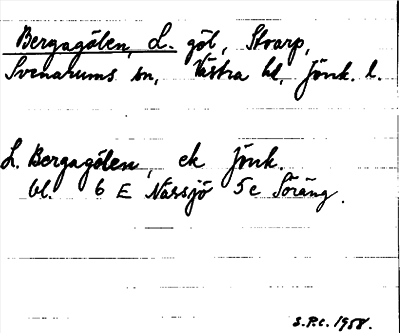 Bergagölen, L. göl, Stoarp,
Svenarums sn, Västra hd, Jönk. l.
L. Bergagölen, ek Jönk.
bl. 6 E Nässjö 5e Söräng.
S.P.C. 1958.